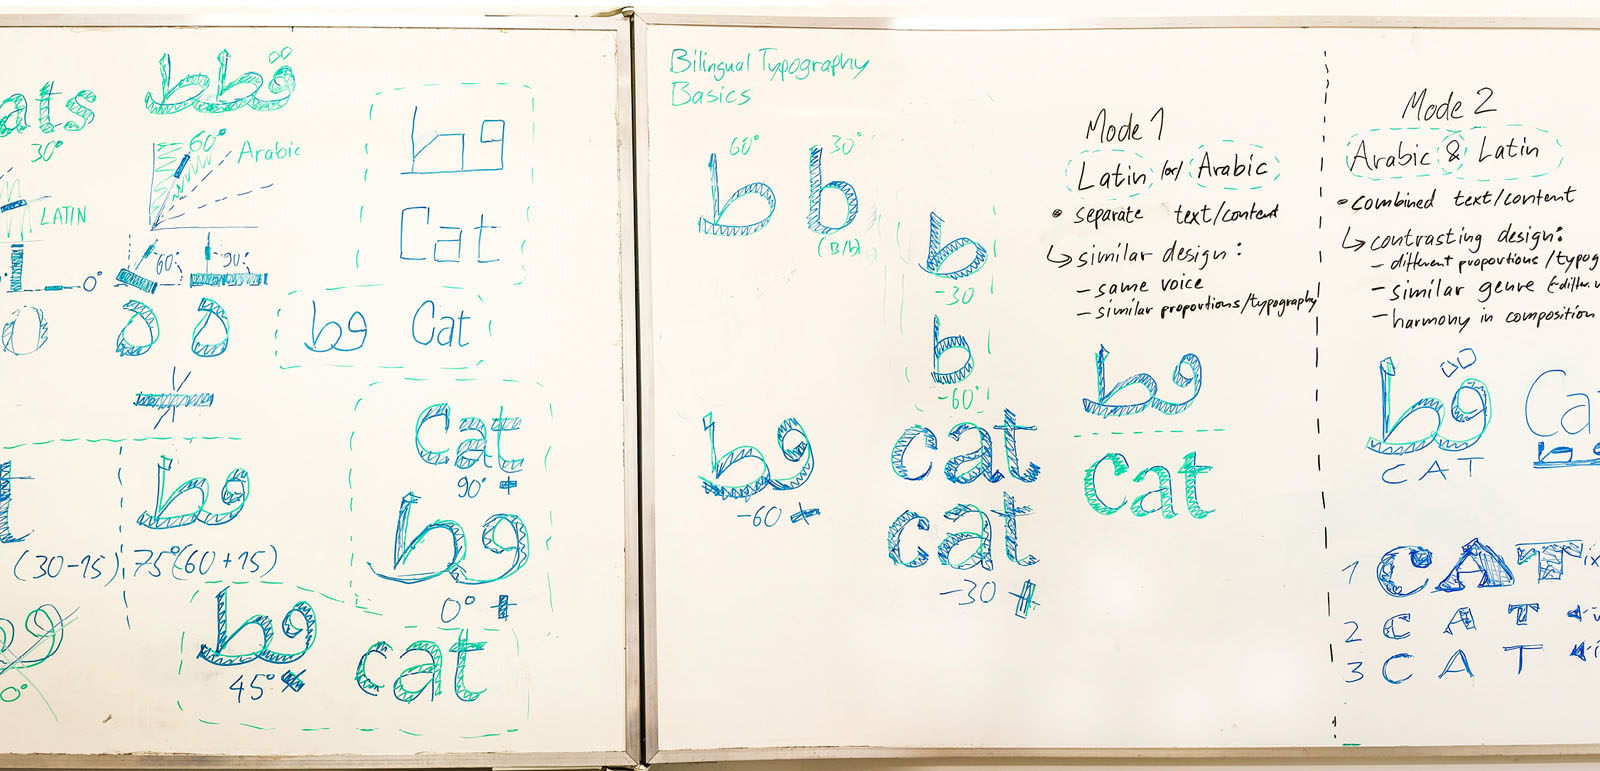 ats
30°
قطط
60°
Arabic
LATIN
0°
60°
90°
قط
Cat
قط
Cat
cat
90°
قط
0°
قط
(30-15)
75°(60+15)
0°
قط
45°
cat
Bilingual Typography
Basics
60°
ط
30°
b
(B/b)
b
-30
b
-60°
قط
-60
cat
cat
-30
Mode 1
Latin /or/ Arabic
• separate text/content
↳ similar design:
- same voice
- similar proportions/typography
قط
cat
Mode 2
Arabic & Latin
• combined text/content
↳ contrasting design:
- different proportions/typog
- similar genre
- harmony in composition
قط
CAT
Ca
1 CAT
2 CAT
3 CAT